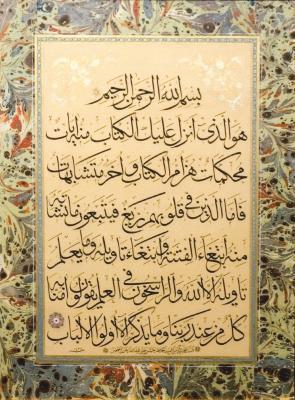 بسم الله الرحمن الرحيم
هو الذي انزل عليك الكتاب منه ايات
محكمات هن ام الكتاب واخر متشابهات
فاما الذين في قلوبهم زيغ فيتبعون ما تشابه
منه ابتغاء الفتنة وابتغاء تاويله وما يعلم
تاويله الا الله والراسخون في العلم يقولون امنا به
كل من عند ربنا وما يذكر الا اولوا الالباب